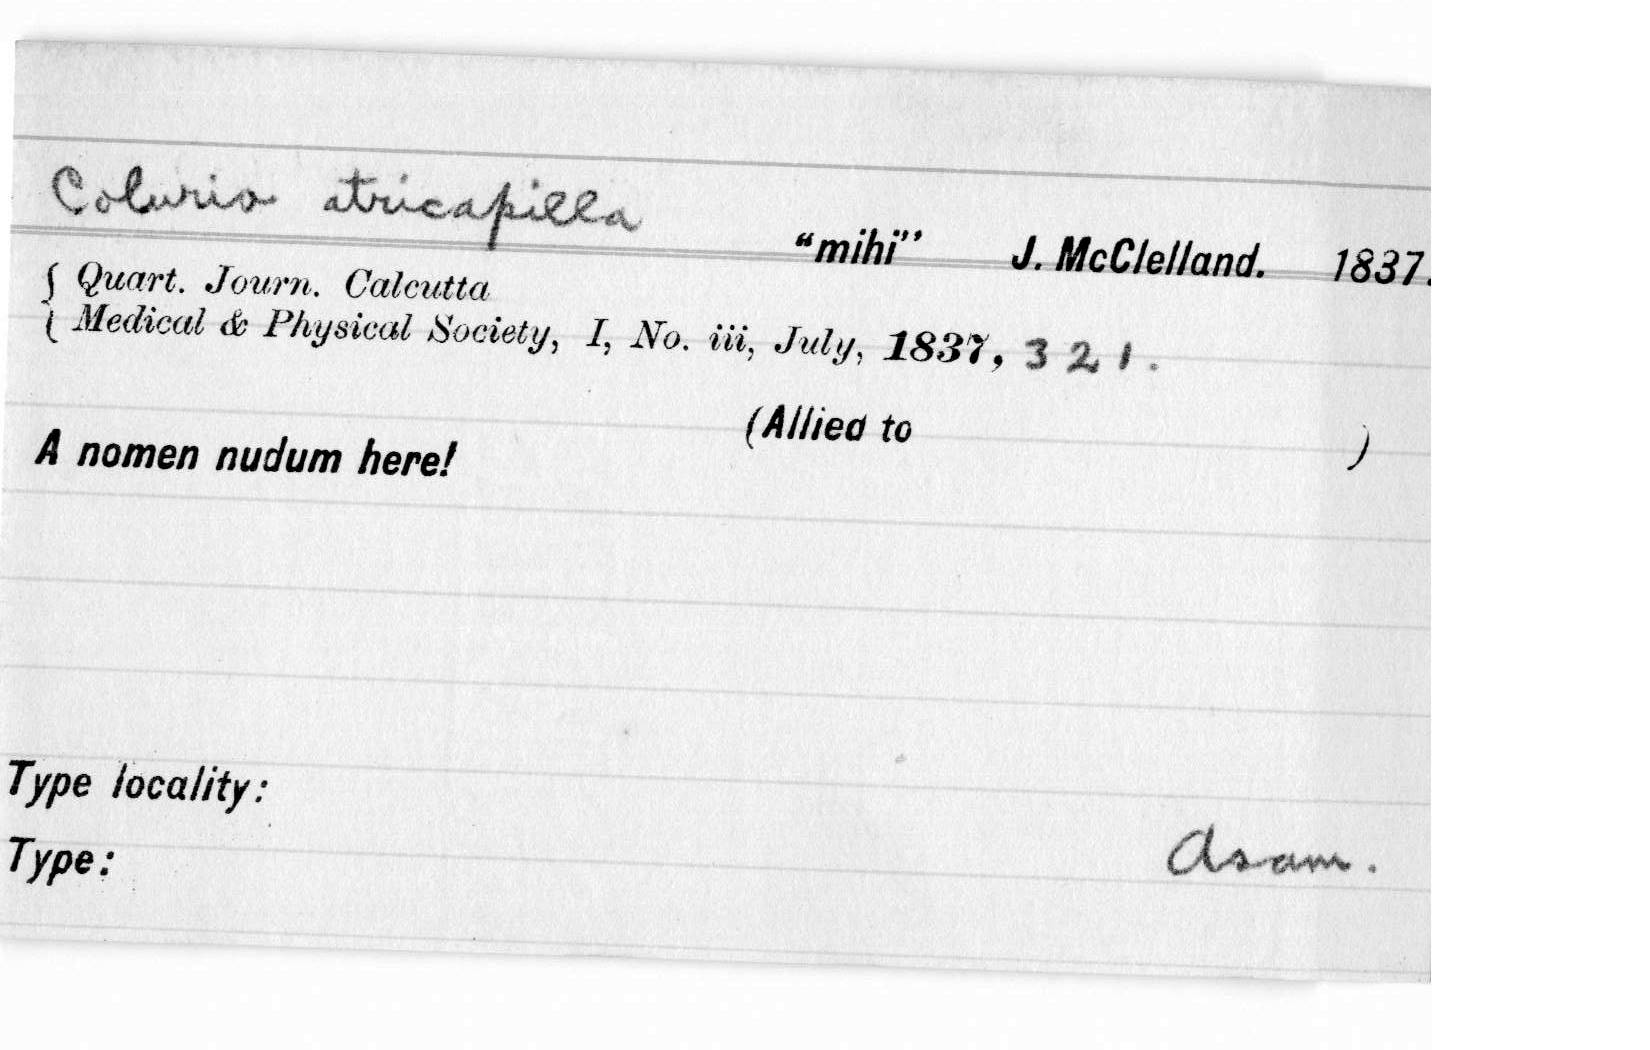 Coluria atricapilla "mihi" J. McClelland. 1837.
{ Quart. Journ. Calcutta
{ Medical & Physical Society, I, No. iii, July, 1837, 321.
(Allied to )
A nomen nudum here!
Type locality:
Type: Asam.